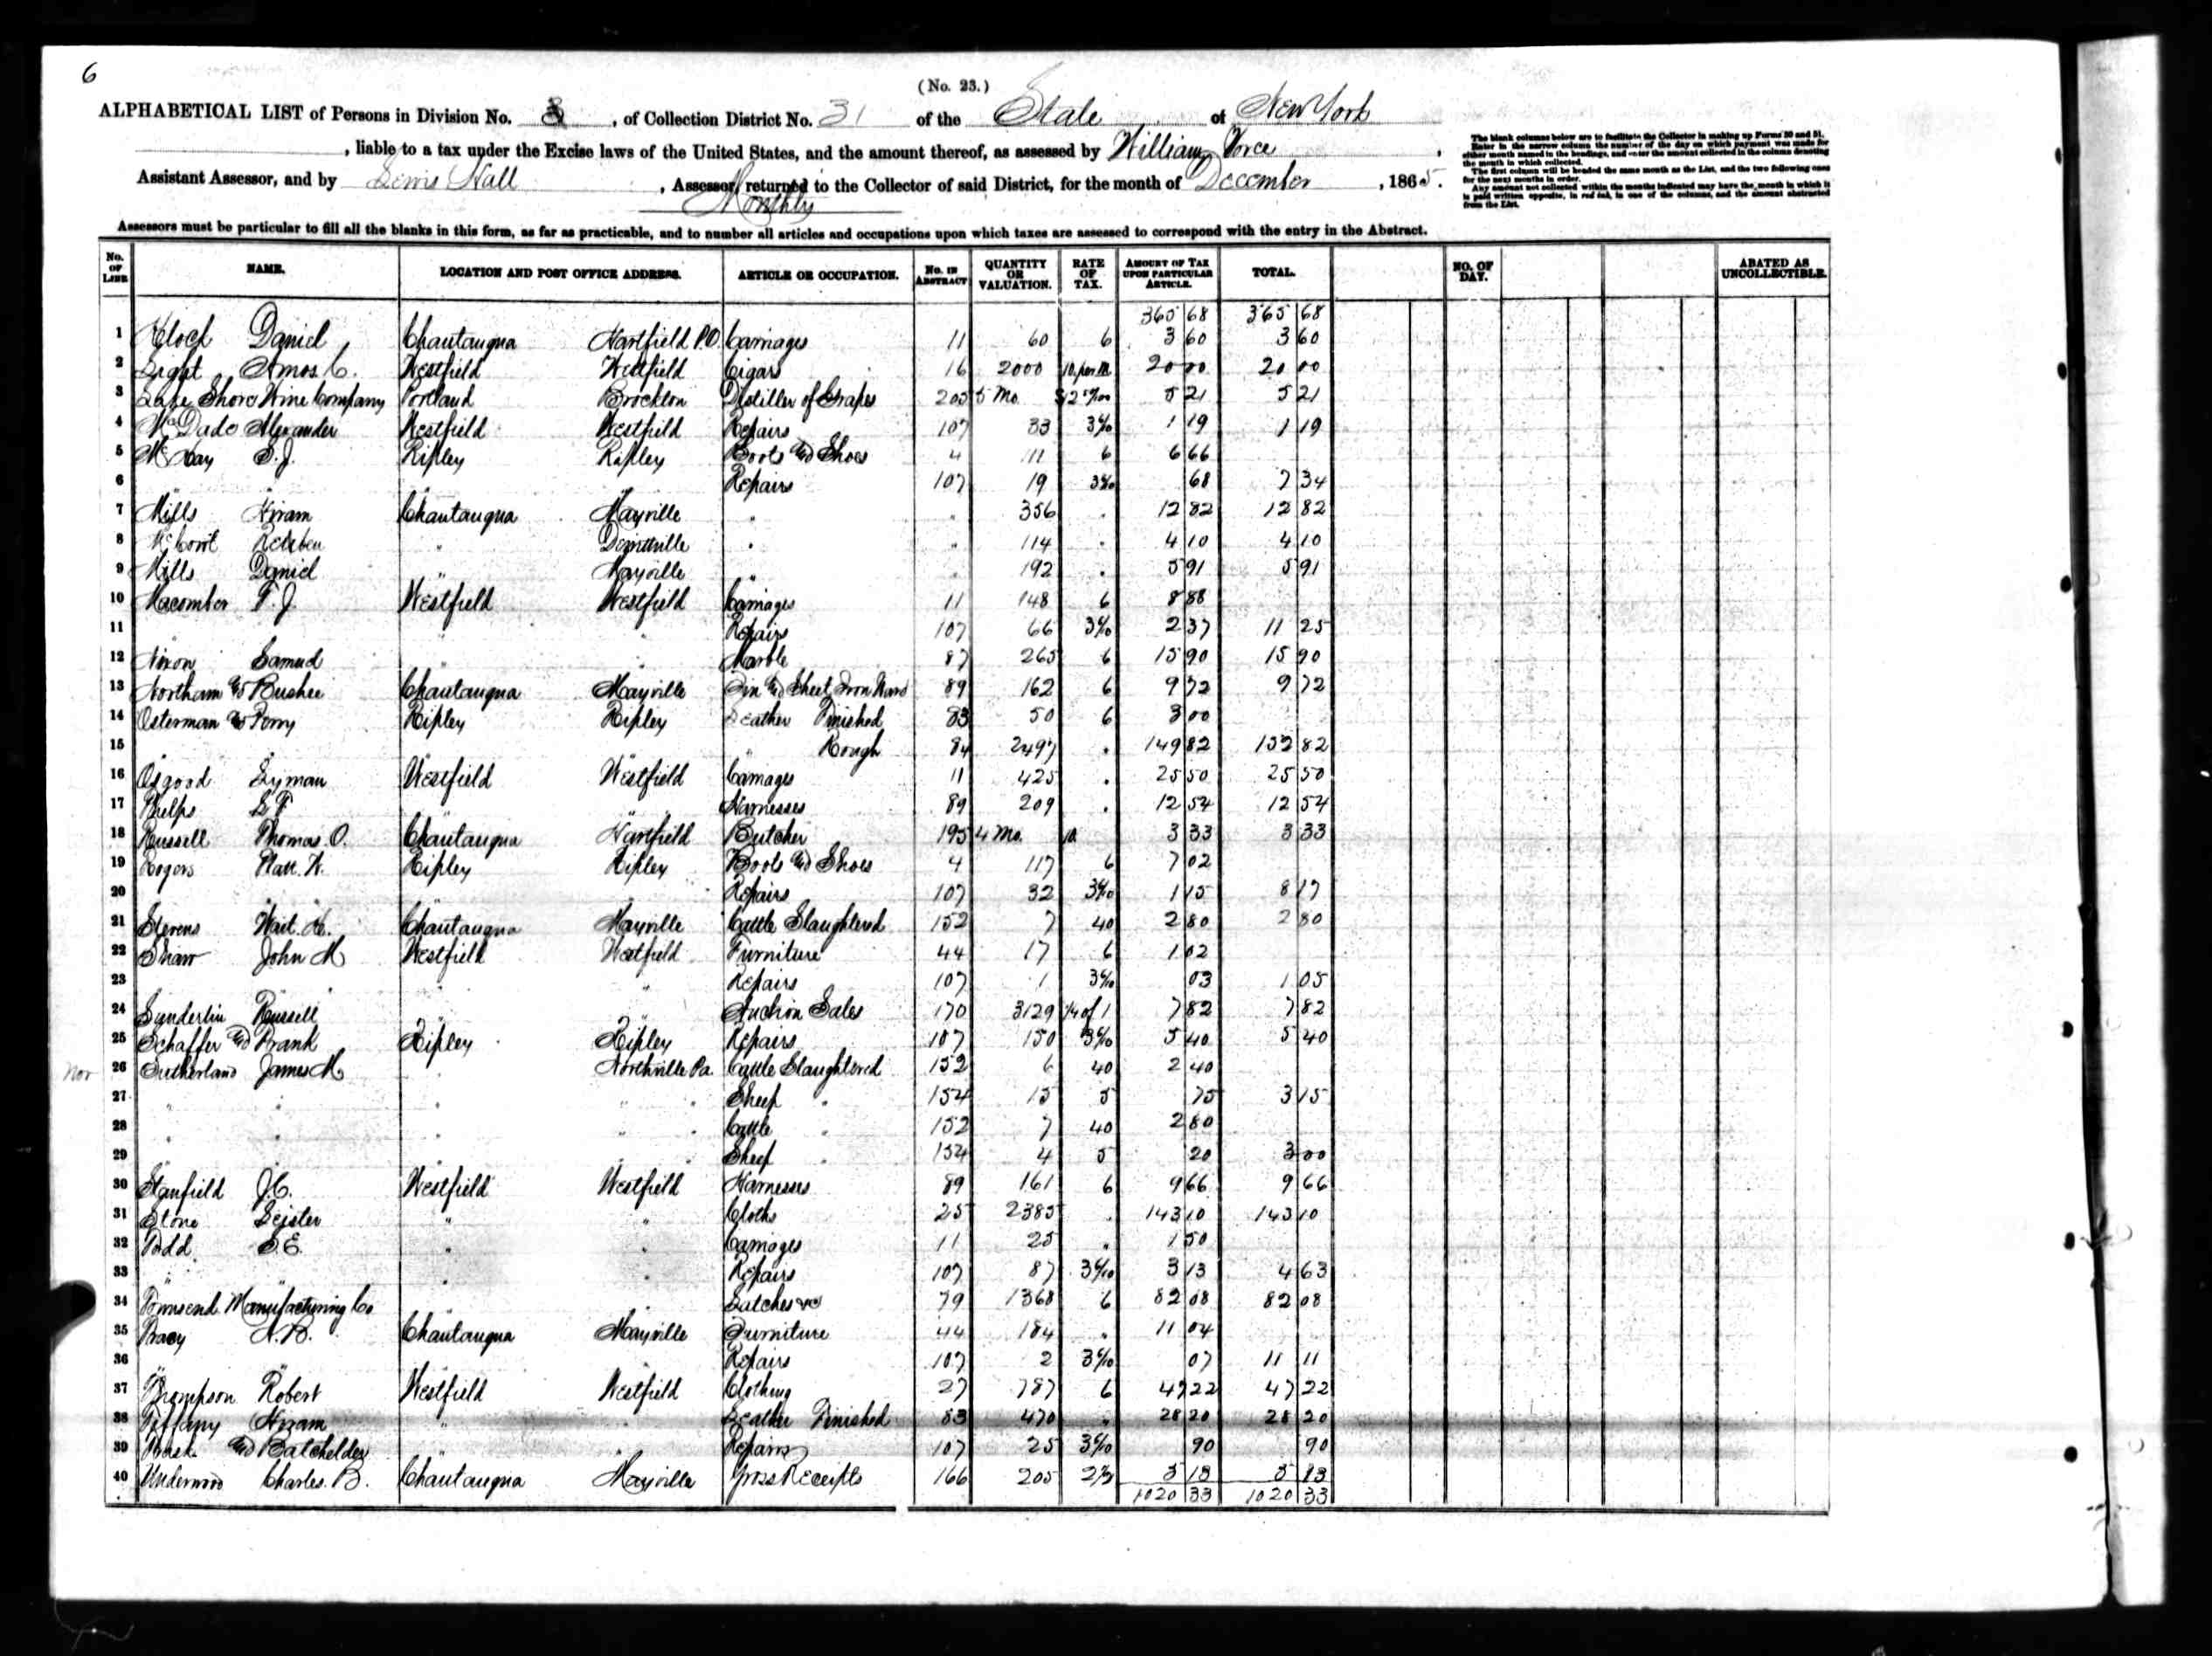 6
(No. 23.)
ALPHABETICAL LIST of Persons in Division No. 3, of Collection District No. 31 of the State of New York
, liable to a tax under the Excise laws of the United States, and the amount thereof, as assessed by William Vorce
Assistant Assessor, and by Lewis Hall, Assessor, returned to the Collector of said District, for the month of December, 1865.
Monthly
The blank columns below are to facilitate the Collector in making up Forms 30 and 31.
Enter in the narrow column the number of the day on which payment was made for
either month named in the headings, and enter the amount collected in the column denoting
the month in which collected.
The first column will be headed the same month as the List, and the two following ones
for the next months in order.
Any amount not collected within the months indicated may have the month in which it
is paid written opposite, in red ink, in one of the columns, and the amount abstracted
from the List.
Assessors must be particular to fill all the blanks in this form, as far as practicable, and to number all articles and occupations upon which taxes are assessed to correspond with the entry in the Abstract.
No. OF LINE NAME. LOCATION AND POST OFFICE ADDRESS. ARTICLE OR OCCUPATION. No. IN ABSTRACT QUANTITY OR VALUATION. RATE OF TAX. AMOUNT OF TAX UPON PARTICULAR ARTICLE. TOTAL. NO. OF DAY. ABATED AS UNCOLLECTIBLE.
365 68 365 68
1 Klock Daniel Chautauqua Hartfield P.O. Carriages 11 60 6 3 60 3 60
2 Light Amos C. Westfield Westfield Cigars 16 2000 10 per M 20 00 20 00
3 Lake Shore Wine Company Portland Brockton Distiller of Grapes 205 5 Mo. $12 50/100 5 21 5 21
4 McDade Alexander Westfield Westfield Repairs 107 33 3 6/10 1 19 1 19
5 McKay S. J. Ripley Ripley Boots & Shoes 4 111 6 6 66
6 " " " " Repairs 107 19 3 6/10 68 7 34
7 Mills Hiram Chautauqua Mayville " " 356 " 12 82 12 82
8 McCort Reuben " Dewittville " " 114 " 4 10 4 10
9 Mills Daniel " Mayville " " 192 " 5 91 5 91
10 Macomber T. J. Westfield Westfield Carriages 11 148 6 8 88
11 " " Repairs 107 66 3 6/10 2 37 11 25
12 Nixon Samuel " " Marble 87 265 6 15 90 15 90
13 Northam & Bushee Chautauqua Mayville Tin & Sheet Iron Ware 89 162 6 9 72 9 72
14 Osterman & Perry Ripley Ripley Leather Finished 83 50 6 3 00
15 " Rough 84 2497 " 149 82 152 82
16 Osgood Lyman Westfield Westfield Carriages 11 425 " 25 50 25 50
17 Phelps L F " " Harnesses 89 209 " 12 54 12 54
18 Russell Thomas O. Chautauqua Hartfield Butcher 195 4 Mo. 10 3 33 3 33
19 Rogers Platt. W. Ripley Ripley Boots & Shoes 4 117 6 7 02
20 " " " " Repairs 107 32 3 6/10 1 15 8 17
21 Stevens Wait. H. Chautauqua Mayville Cattle Slaughtered 152 7 40 2 80 2 80
22 Shaw John M Westfield Westfield Furniture 44 17 6 1 02
23 " " Repairs 107 1 3 6/10 03 1 05
24 Sunderlin Russell " " Auction Sales 170 3129 1/4 of 1 7 82 7 82
25 Schaffer & Frank Ripley Ripley Repairs 107 150 3 6/10 5 40 5 40
Nov 26 Sutherland James M " Northville Pa Cattle Slaughtered 152 6 40 2 40
27 " " " " " Sheep " 154 15 5 75 3 15
28 " " " " " Cattle " 152 7 40 2 80
29 " " " " " Sheep " 154 4 5 20 3 00
30 Stanfield J. C. Westfield Westfield Harnesses 89 161 6 9 66 9 66
31 Stone Leister " " Cloths 25 2385 " 143 10 143 10
32 Todd S. E. " " Carriages 11 25 " 1 50
33 " " " " Repairs 107 87 3 6/10 3 13 4 63
34 Townsend Manufacturing Co " " Latches &c 79 1368 6 82 08 82 08
35 Tracy A. B. Chautauqua Mayville Furniture 44 184 " 11 04
36 " " " " Repairs 107 2 3 6/10 07 11 11
37 Thompson Robert Westfield Westfield Clothing 27 787 6 47 22 47 22
38 Tiffany Hiram " " Leather Finished 83 470 " 28 20 28 20
39 & Batchelder " " Repairs 107 25 3 6/10 90 90
40 Underwood Charles. B. Chautauqua Mayville Gross Receipts 166 205 2 1/2 5 13 5 13
1020 33 1020 33